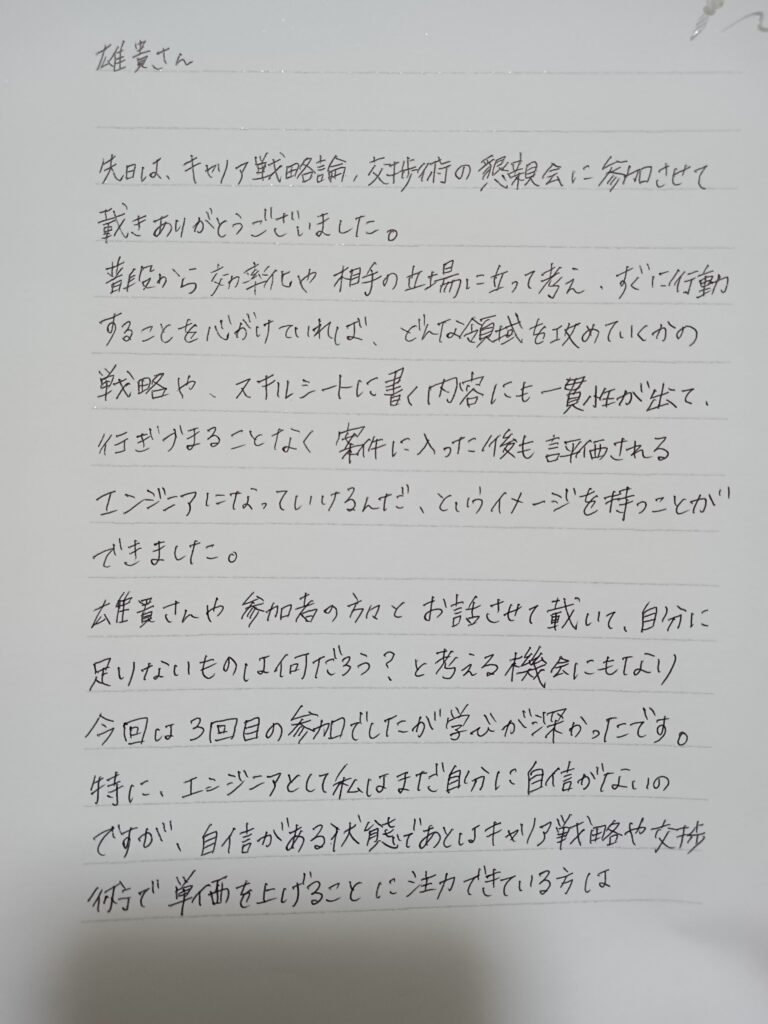 雄貴さん
先日は、キャリア戦略論、交渉術の懇親会に参加させて
載きありがとうございました。
普段から効率化や相手の立場に立って考え、すぐに行動
することを心がけていれば、どんな領域を攻めていくかの
戦略や、スキルシートに書く内容にも一貫性が出て、
行きづまることなく案件に入った後も評価される
エンジニアになっていけるんだ、というイメージを持つことが
できました。
雄貴さんや参加者の方々とお話させて載いて、自分に
足りないものは何だろう?と考える機会にもなり
今回は3回目の参加でしたが学びが深かったです。
特に、エンジニアとして私はまだ自分に自信がないの
ですが、自信がある状態であとはキャリア戦略や交渉
術で単価を上げることに注力できている方は